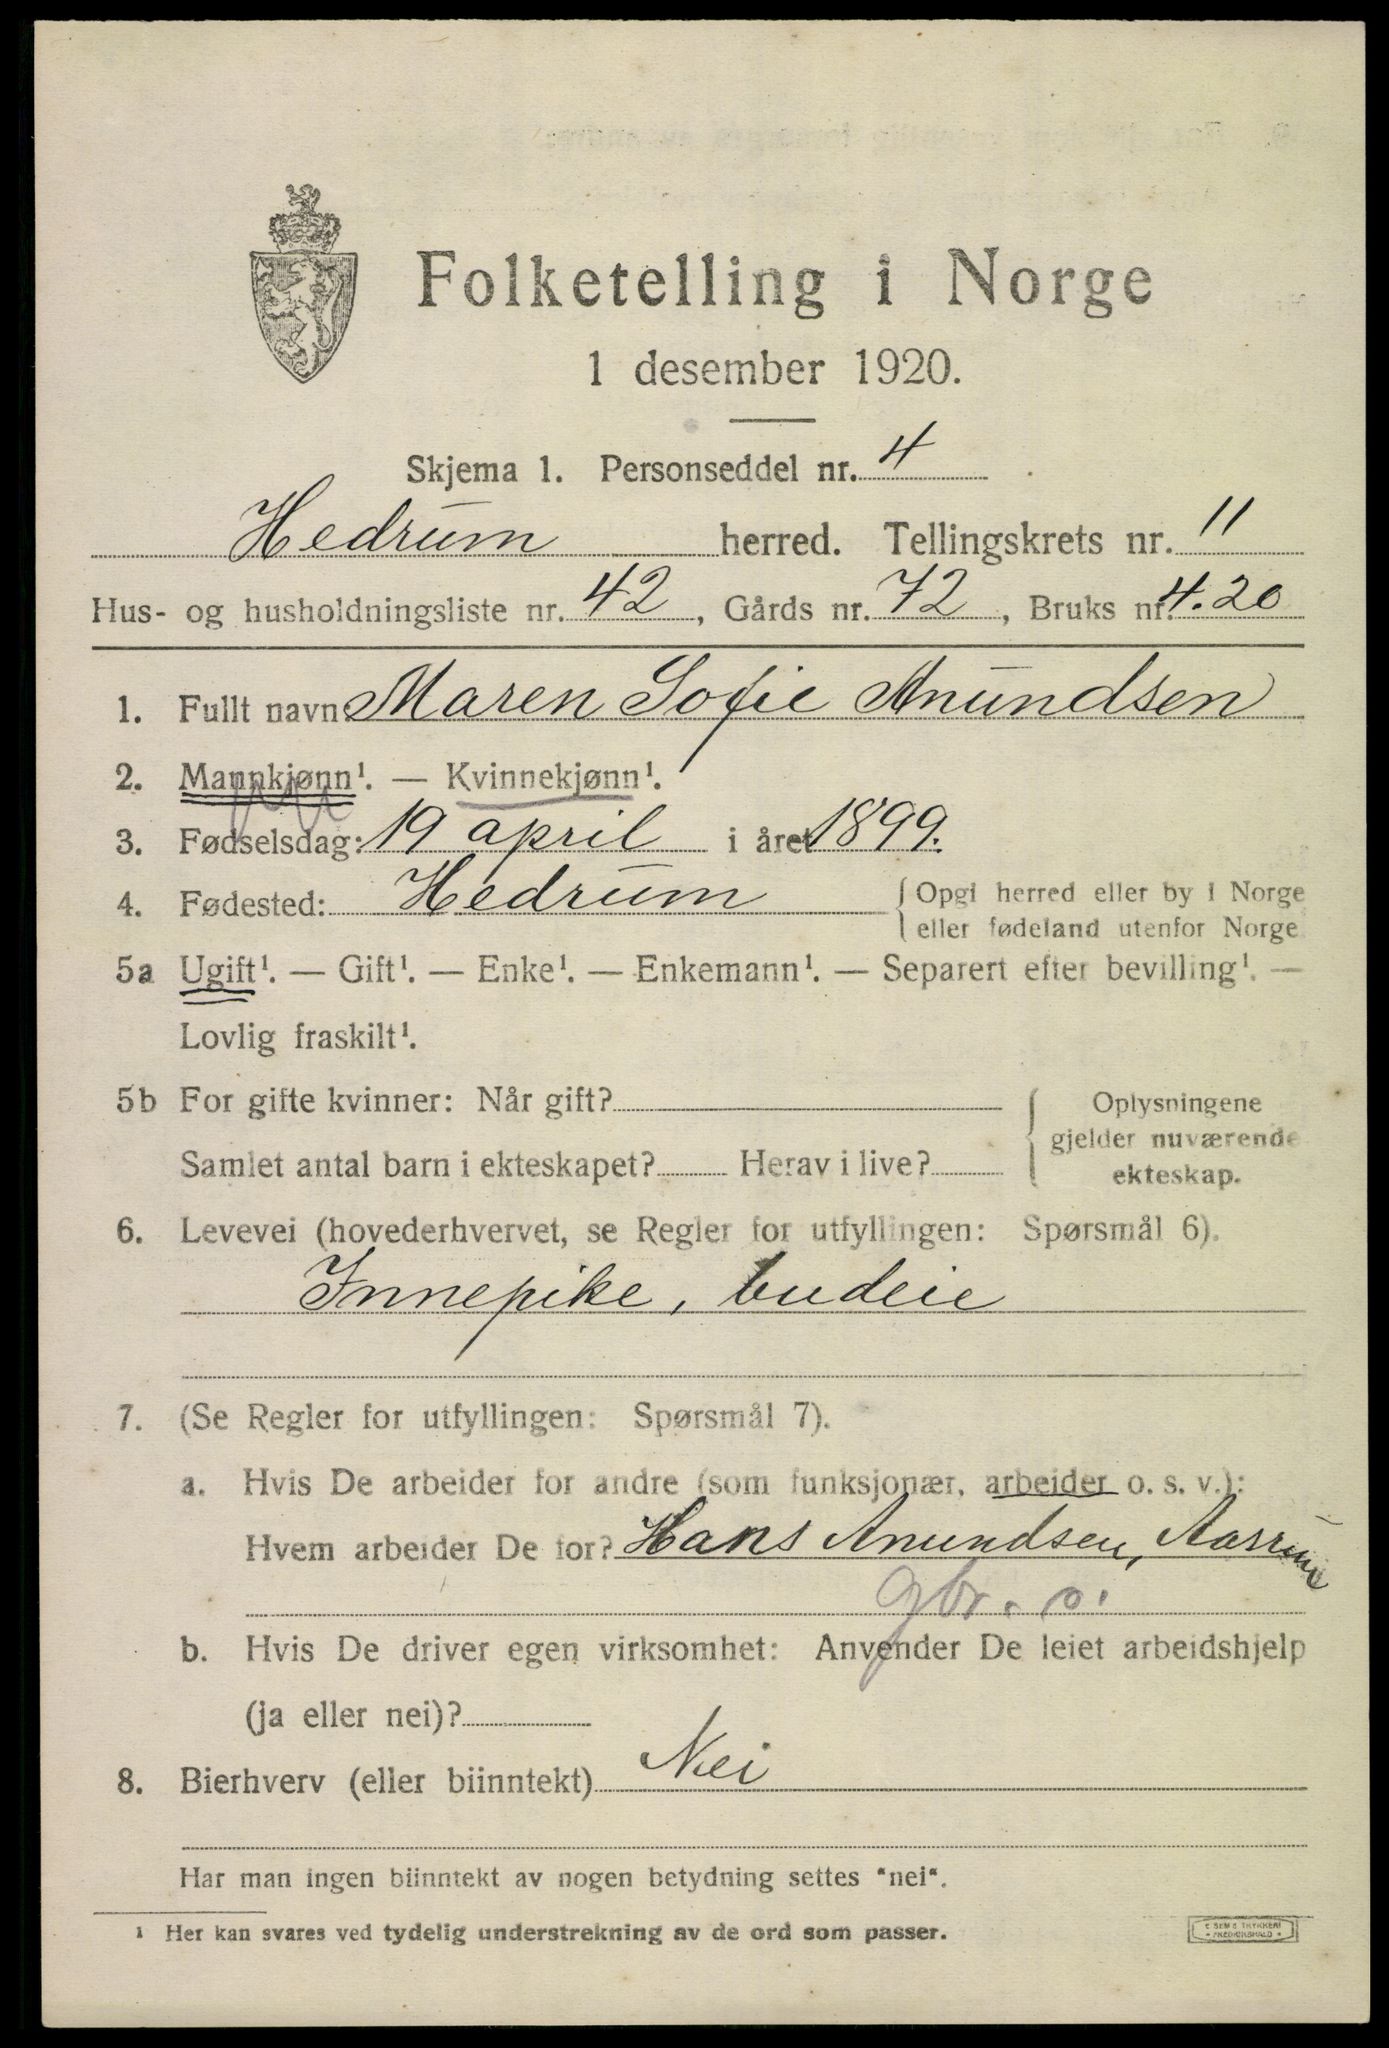 Folketelling i Norge
1 desember 1920.
Skjema 1. Personseddel nr. 4
Hedrum herred. Tellingskrets nr. 11
Hus- og husholdningsliste nr. 42, Gårds nr. 72, Bruks nr. 4.20
1. Fullt navn Maren Sofie Anundsen
2. Mannkjønn¹. — Kvinnekjønn¹.
3. Fødselsdag: 19 april i året 1899.
4. Fødested: Hedrum { Opgi herred eller by i Norge
eller fødeland utenfor Norge
5a Ugift¹. — Gift¹. — Enke¹. — Enkemann¹. — Separert efter bevilling¹. —
Lovlig fraskilt¹.
5b For gifte kvinner: Når gift? { Oplysningene
gjelder nuværende
Samlet antal barn i ekteskapet? Herav i live? ekteskap.
6. Levevei (hovederhvervet, se Regler for utfyllingen: Spørsmål 6).
Innepike, budeie
7. (Se Regler for utfyllingen: Spørsmål 7).
a. Hvis De arbeider for andre (som funksjonær, arbeider o. s. v.):
Hvem arbeider De for? Hans Anundsen, Aasrum
gbr. o.
b. Hvis De driver egen virksomhet: Anvender De leiet arbeidshjelp
(ja eller nei)?
8. Bierhverv (eller biinntekt) Nei
Har man ingen biinntekt av nogen betydning settes "nei".
¹ Her kan svares ved tydelig understrekning av de ord som passer.